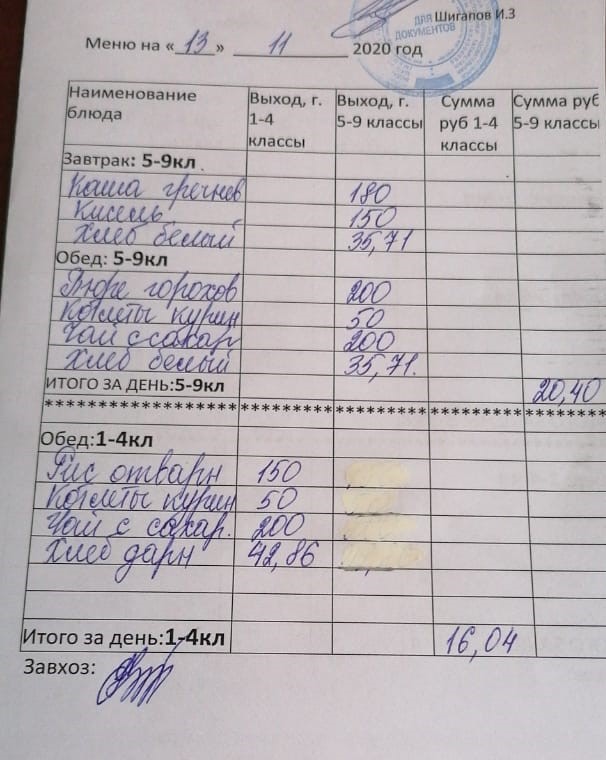 ДЛЯ ДОКУМЕНТОВ
Шигапов И.З
Меню на «13» 11 2020 год
Наименование блюда Выход, г. 1-4 классы Выход, г. 5-9 классы Сумма руб 1-4 классы Сумма руб 5-9 классы
Завтрак: 5-9кл
Каша гречнев 180
Кисель 150
Хлеб белый 35,71
Обед: 5-9кл
Пюре горохов 200
Котлеты курин 50
Чай с сахар 200
Хлеб белый 35,71.
ИТОГО ЗА ДЕНЬ:5-9кл 20,40
Обед:1-4кл
Рис отварн 150
Котлеты курин 50
Чай с сахар. 200
Хлеб дарн 42,86
Итого за день:1-4кл 16,04
Завхоз: